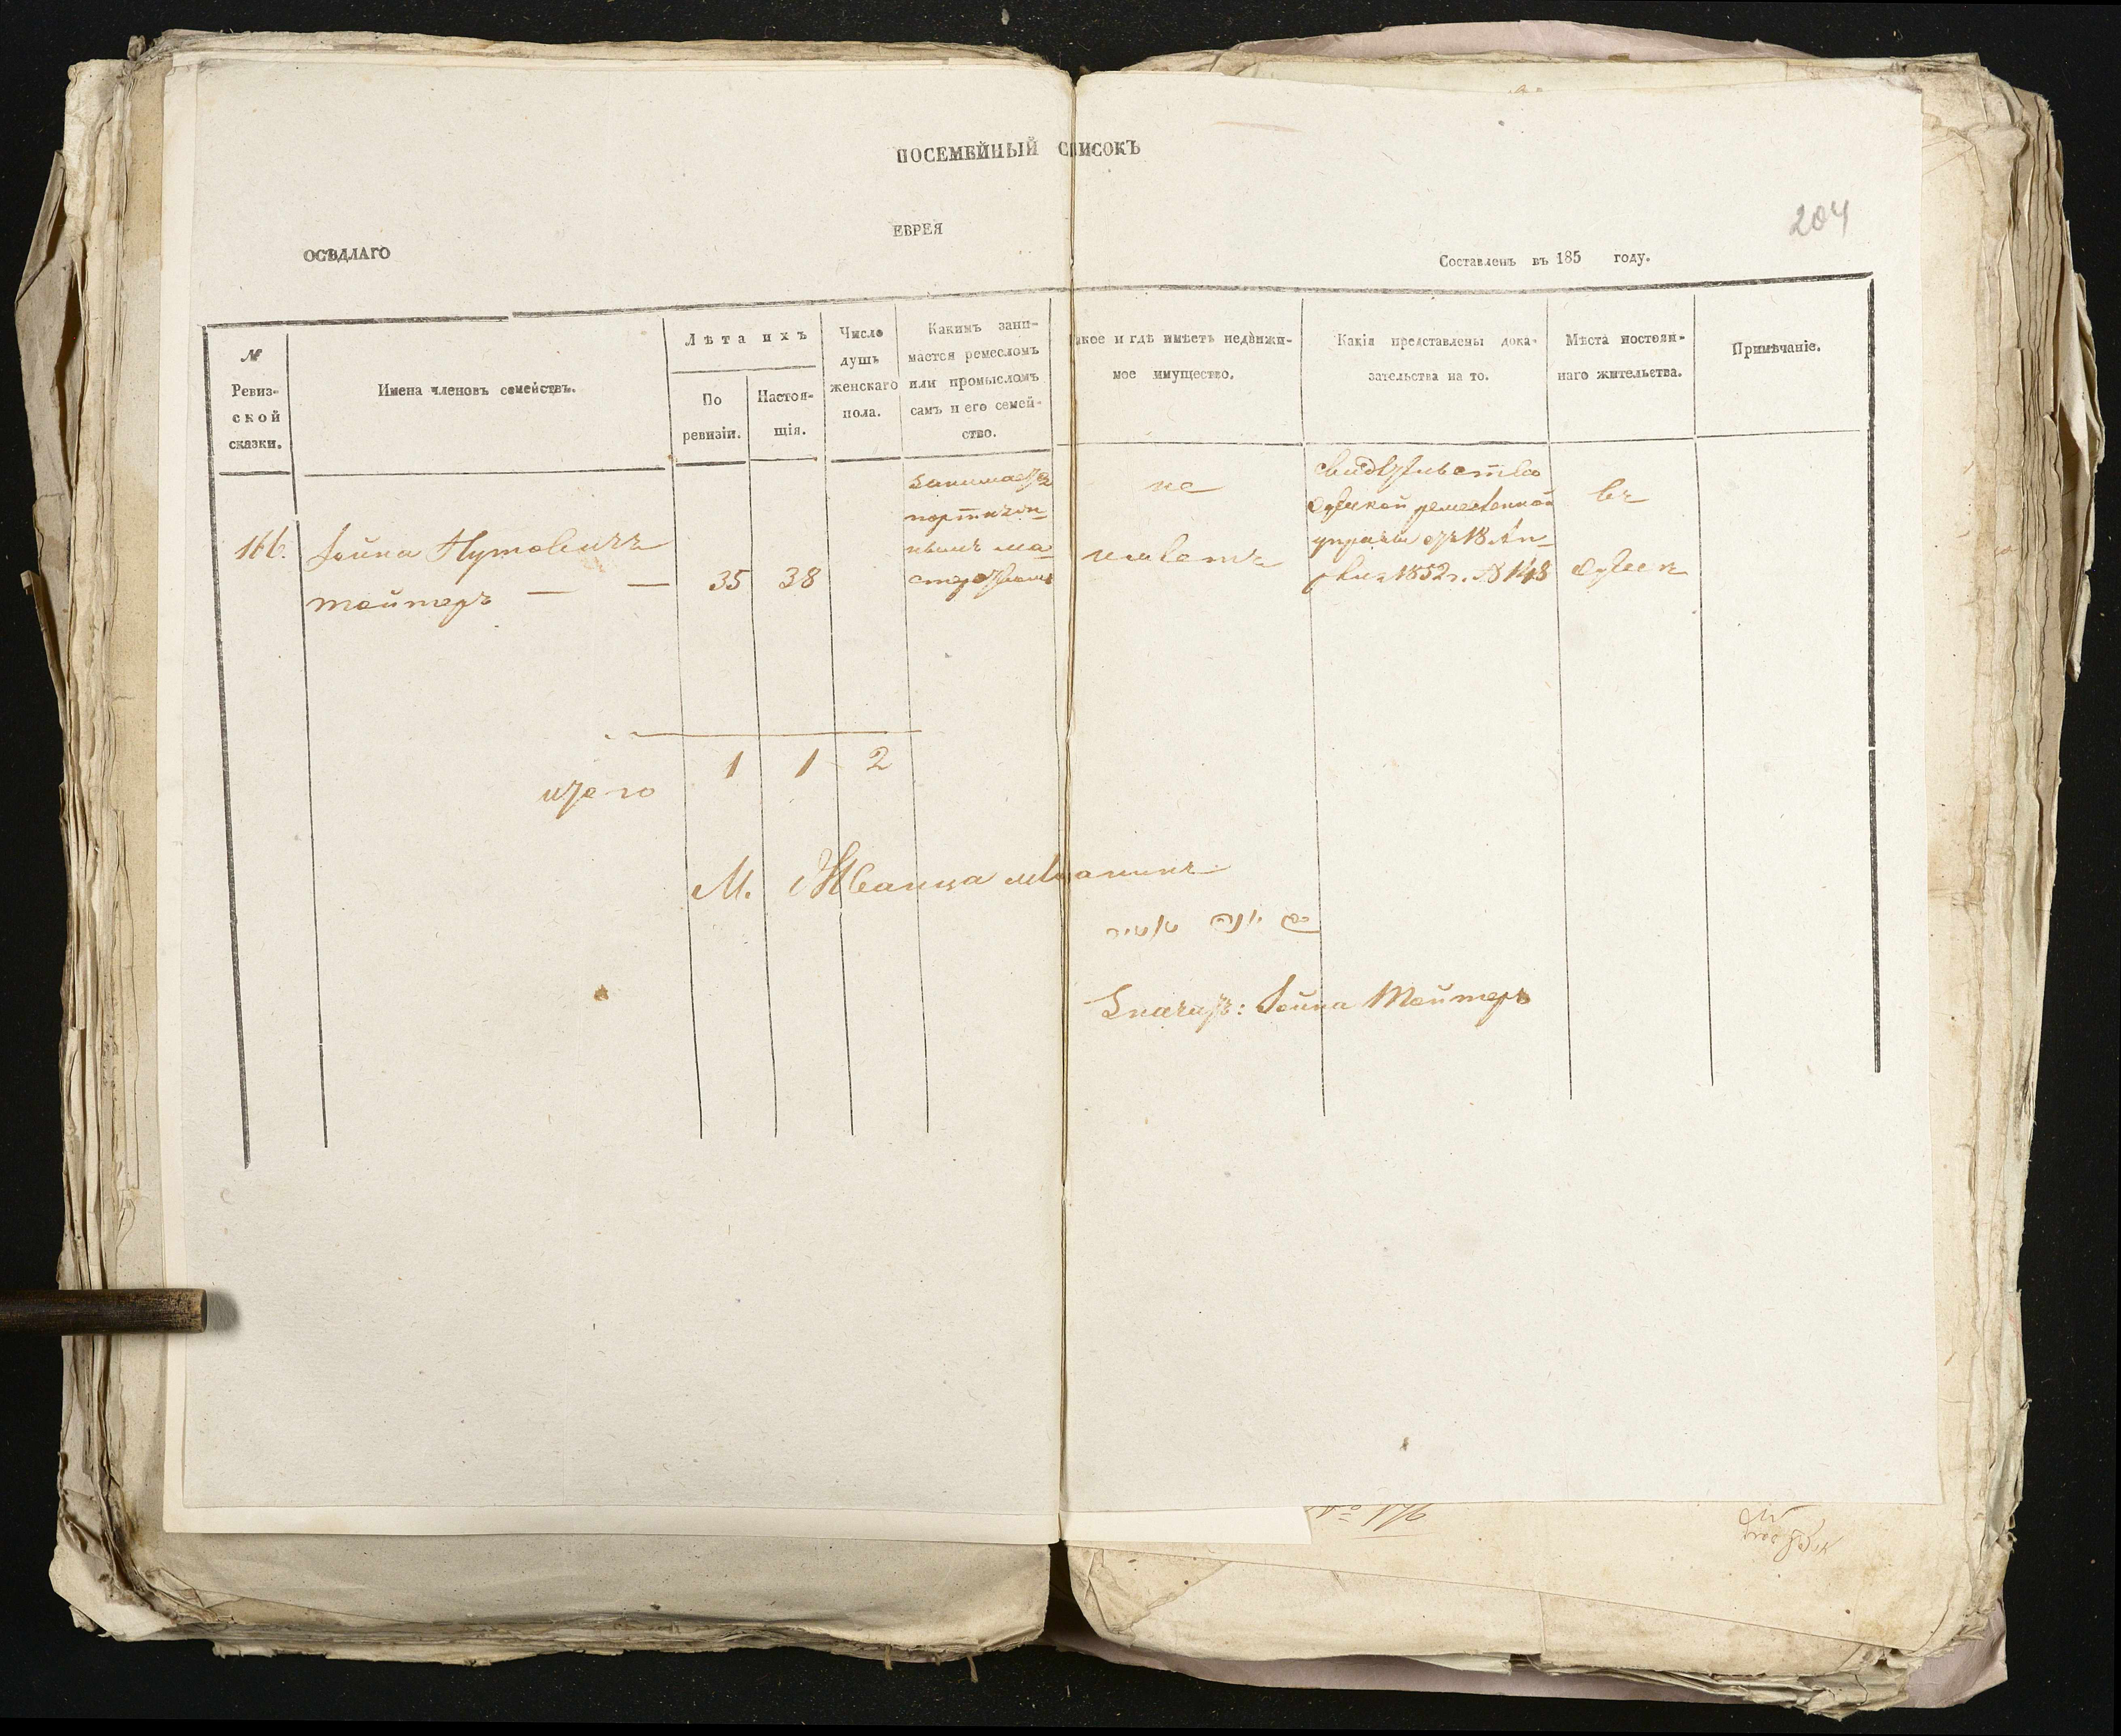 ПОСЕМЕЙНЫЙ СПИСОКЪ
204
ЕВРЕЯ
ОСѢДЛАГО
Составленъ въ 185 году.
№ Ревиз-
ской
сказки.
Имена членовъ семействъ.
Лѣта ихъ
По
ревизіи.
Настоя-
щія.
Число
душъ
женскаго
пола.
Какимъ зани-
мается ремесломъ
или промысломъ
самъ и его семей-
ство.
акое и гдѣ имѣетъ недвижи-
мое имущество.
Какія представлены дока-
зательства на то.
Мѣста постоян-
наго жительства.
Примѣчаніе.
166.
Іойна
Тойтеръ — —
35
38
занимается
портняж-
нымъ ма-
стерствомъ
не
имѣетъ
свидѣтельство
Одесской ремесленной
управы отъ 18 Ап-
рѣля 1852 г. № 148
въ
Одессѣ
итого
1
1
2
М. Жванца мѣщанинъ
יונה
Значитъ: Іойна Тойтеръ